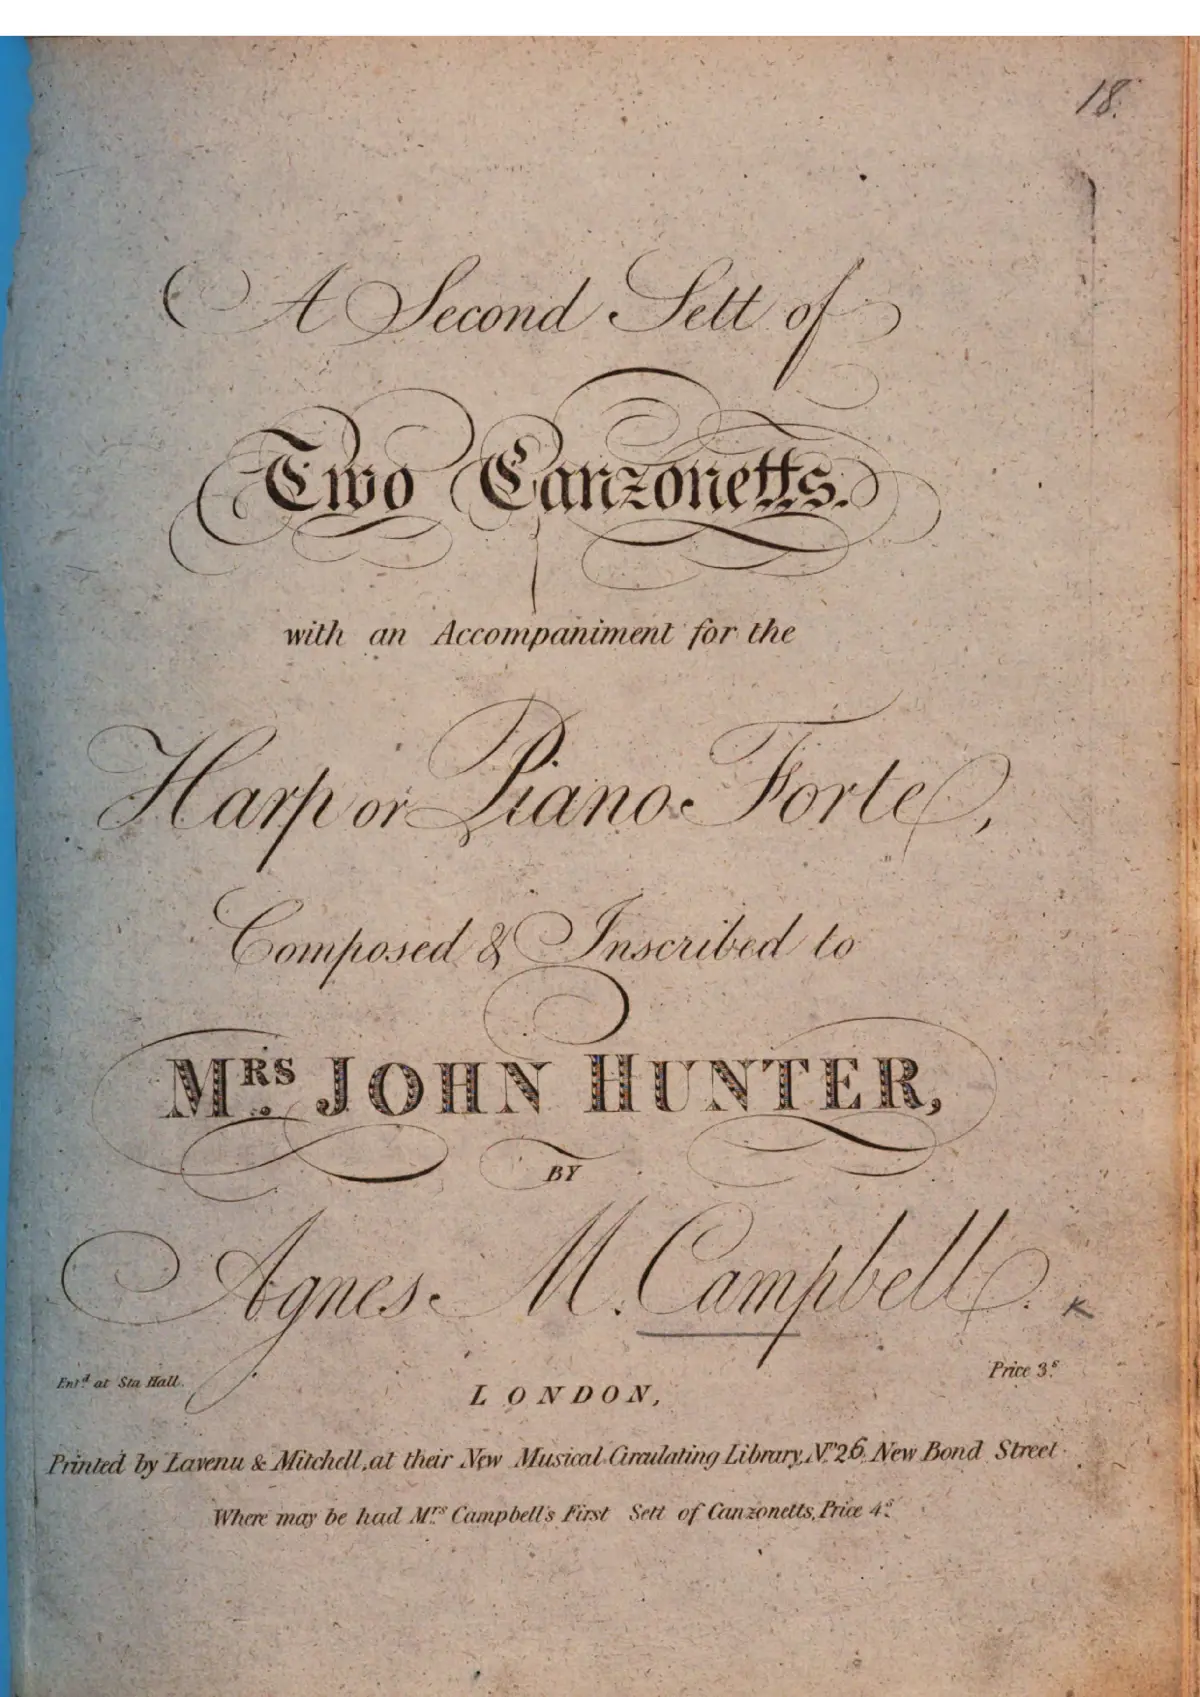 18.
A Second Sett of
Two Canzonetts.
with an Accompaniment for the
Harp or Piano Forte,
Composed & Inscribed to
MRS. JOHN HUNTER,
BY
Agnes M. Campbell.
K
Entd. at Sta. Hall.
Price 3s.
LONDON,
Printed by Lavenu & Mitchell, at their New Musical Circulating Library, No. 26, New Bond Street
Where may be had Mrs. Campbell's First Sett of Canzonetts, Price 4s.